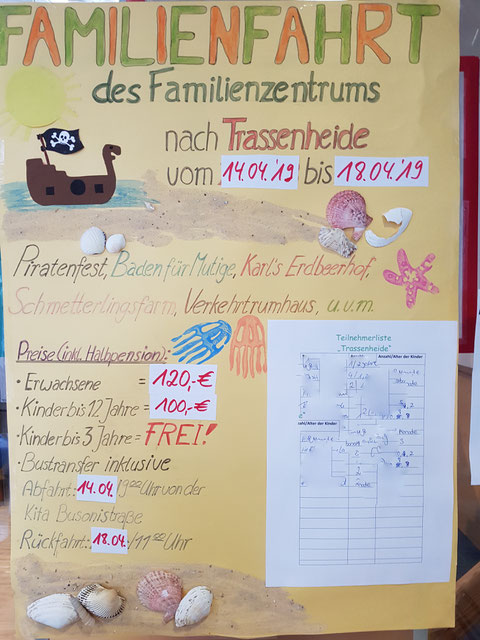 FAMILIENFAHRT
des Familienzentrums
nach Trassenheide
vom 14.04.'19 bis 18.04.'19
Piratenfest, Baden für Mutige, Karl's Erdbeerhof,
Schmetterlingsfarm, Verkehrtrumhaus, u.v.m.
Preise (inkl. Halbpension):
• Erwachsene = 120,-€
• Kinder bis 12 Jahre = 100,-€
• Kinder bis 3 Jahre = FREI!
• Bustransfer inklusive
Abfahrt: 14.04. / 9 00 Uhr von der
Kita Busonistraße
Rückfahrt: 18.04. / 11 00 Uhr
Teilnehmerliste
„Trassenheide"
Anzahl/Alter der Kinder
zahl/Alter der Kinder